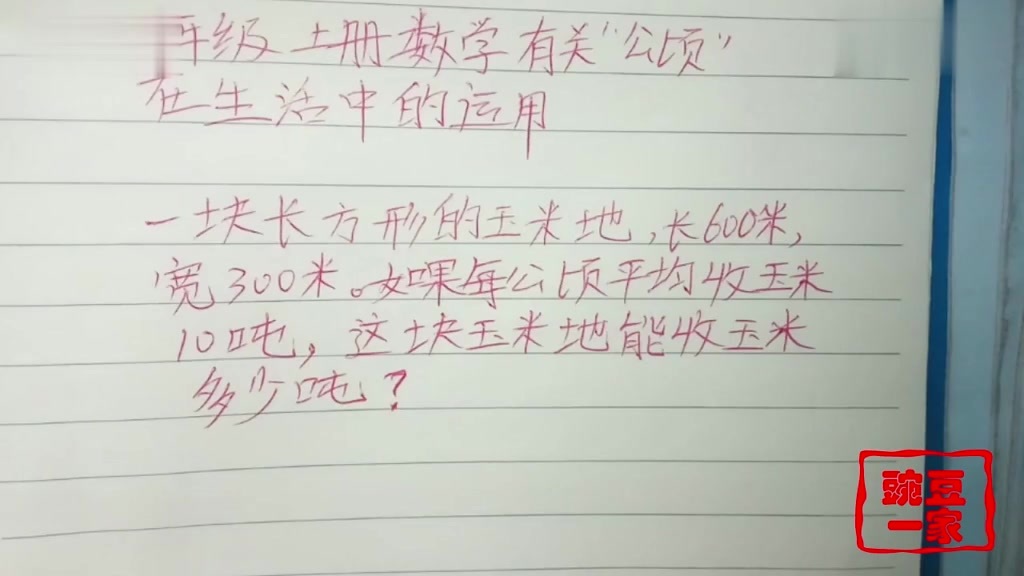 年级上册数学有关“公顷”
在生活中的运用
一块长方形的玉米地,长600米,
宽300米。如果每公顷平均收玉米
10吨,这块玉米地能收玉米
多少吨?
豌豆
一家